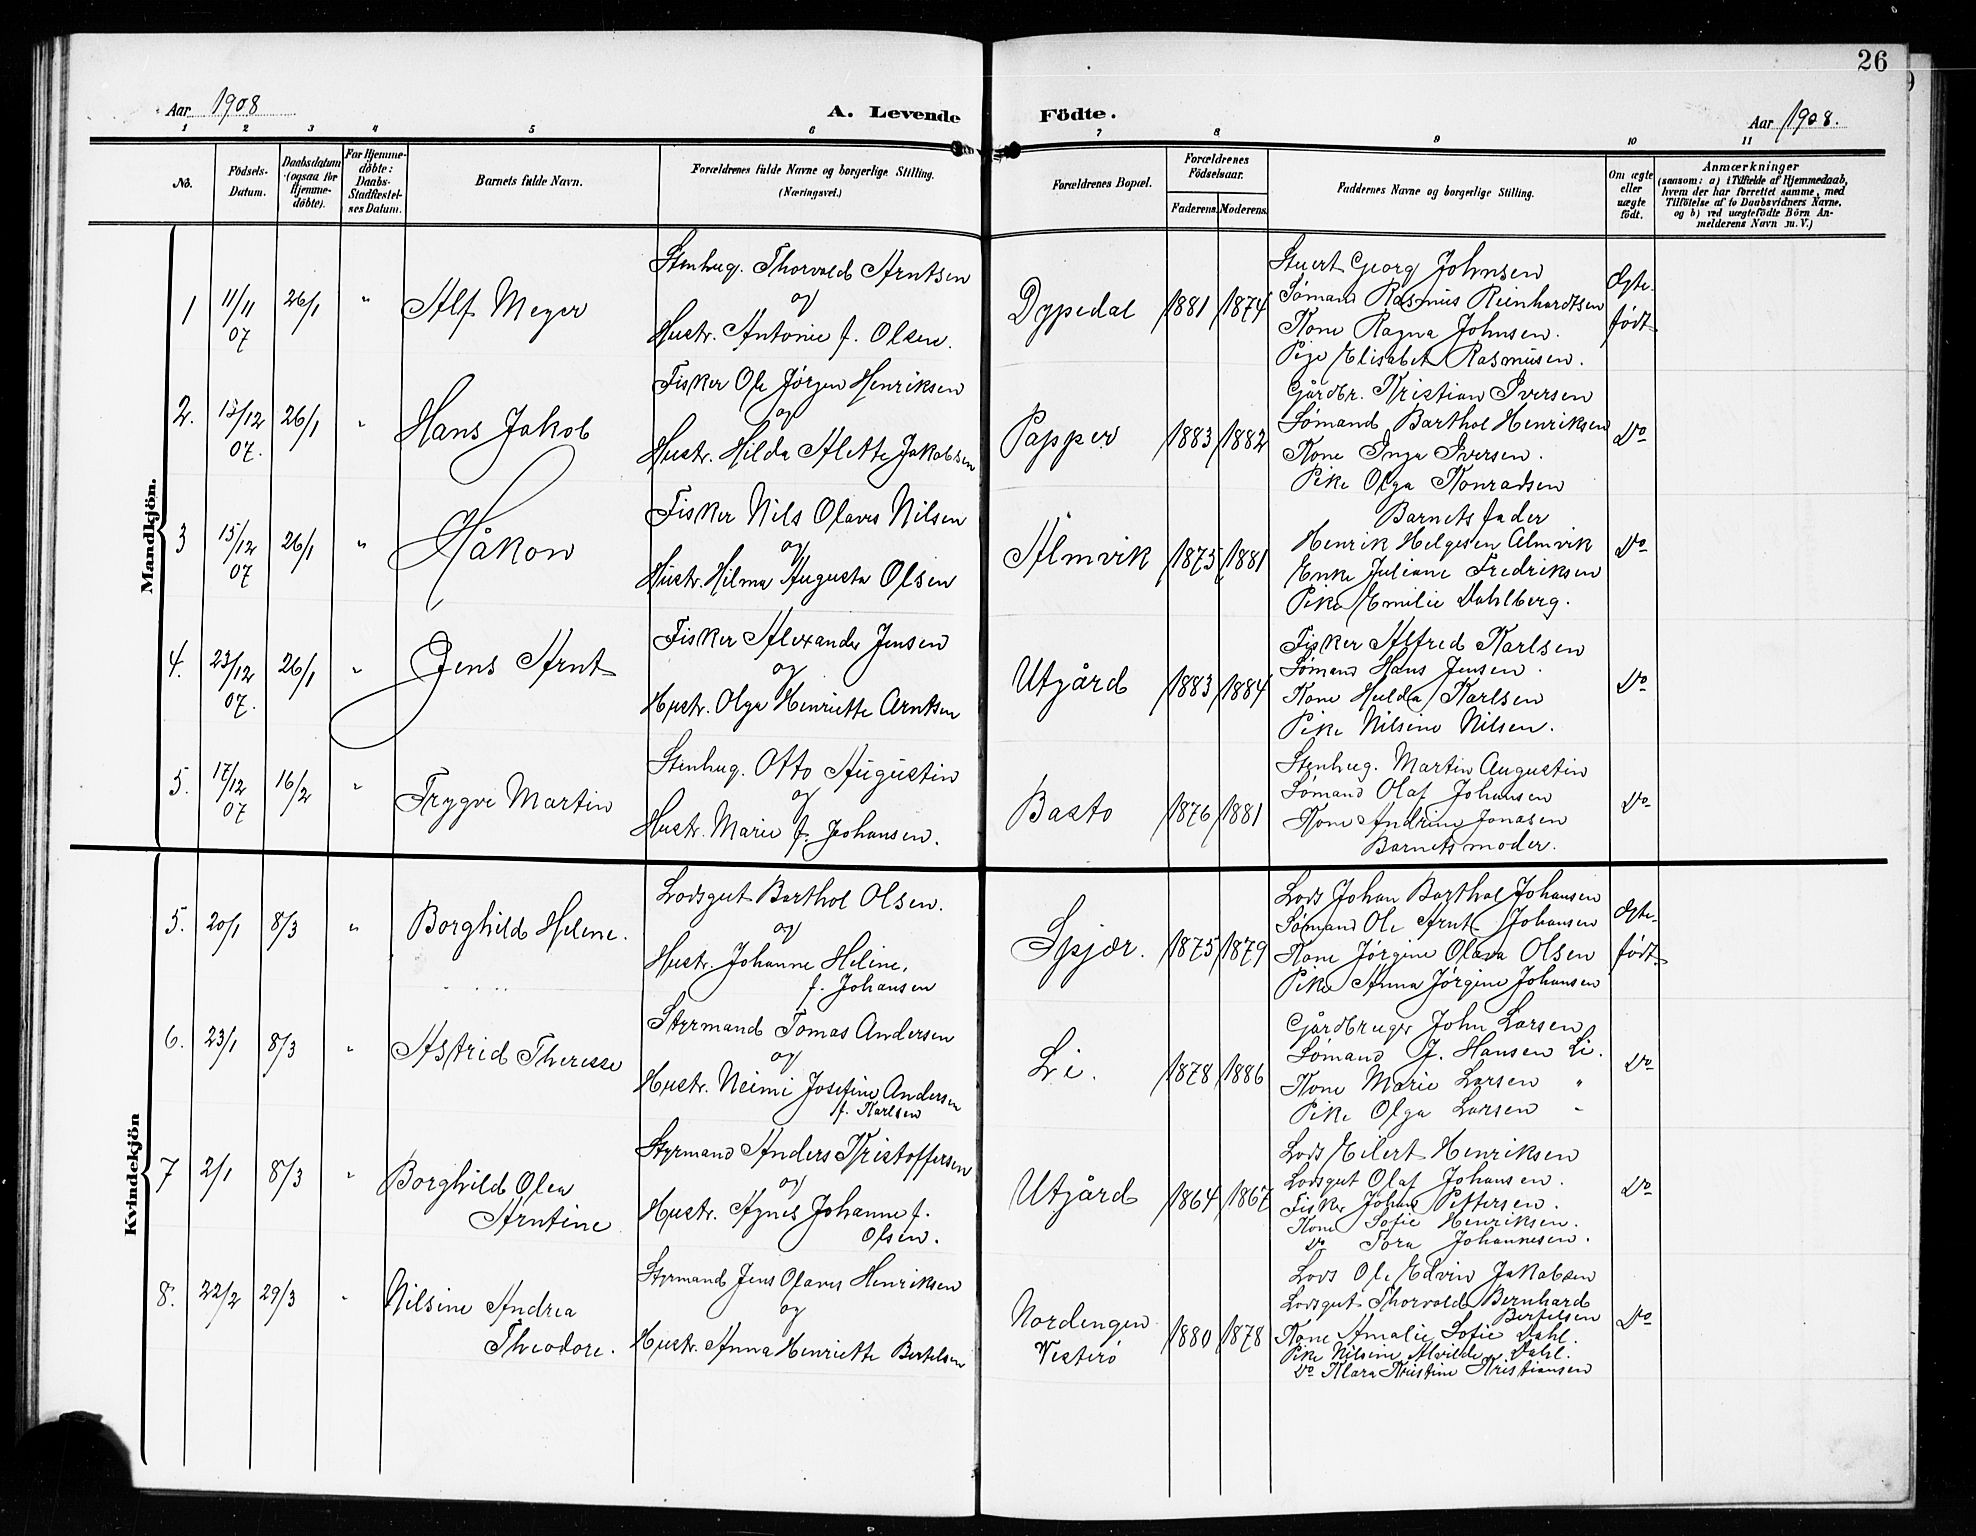 26
Aar 1908
A. Levende
Födte.
Aar 1908.
1 2 3 4 5 6 7 8 9 10 11
No.
Födsels-
Datum.
Daabsdatum
(ogsaa for
Hjemme-
döbte).
For Hjemme-
döbte:
Daabs-
Stadfæstel-
ses Datum.
Barnets fulde Navn.
Forældrenes fulde Navne og borgerlige Stilling.
(Næringsvei.)
Forældrenes Bopæl.
Forældrenes
Födselsaar.
Faderens. Moderens.
Faddernes Navne og borgerlige Stilling.
Om ægte
eller
uægte
födt.
Anmærkninger
(saasom: a) i Tilfælde af Hjemmedaab,
hvem der har forrettet samme, med
Tilföielse af to Daabsvidners Navne,
og b) ved uægtefödte Börn An-
melderens Navn m. V.)
Mandkjön.
1
11/11
07
26/1
"
Alf Meyer
Stenhug. Thorvald Arntsen
og
Hustr. Antonie f. Olsen.
Dypedal
1881
1874
Stuert Georg Johnsen
Sømand Rasmus Reinhardtsen
Kone Ragna Johnsen.
Pige Elisabet Rasmusen.
Ægte-
født
2.
15/12
07.
26/1
"
Hans Jakob
Fisker Ole Jørgen Henriksen
og
Hustr. Hilda Alette Jakobsen
Papper
1883
1882
Gårdbr. Kristian Iversen
Sømand Barthol Henriksen
Kone Inga Iversen.
Pike Olga Konradsen
Do
3
15/12
07
26/1
"
Håkon
Fisker Nils Olaves Nilsen
og
Hustr. Hilma Augusta Olsen
Almvik
1875
1881
Barnets fader
Henrik Helgesen Almvik
Enke Juliane Fredriksen
Pike Emilie Dahlberg.
Do
4.
23/12
07.
26/1
"
Jens Arnt
Fisker Alexander Jensen
og
Hustr. Olga Henriette Arntsen
Utgård
1883
1884
Fisker Alfred Karlsen
Sømand Hans Jensen.
Kone Hulda Karlsen
Pike Nilsine Nilsen.
Do
5.
17/12
07
16/2
"
Trygve Martin
Stenhug. Otto Augustin
og
Hustr. Marie f. Johansen.
Basto
1876
1881
Stenhug. Martin Augustin
Sømand Olaf Johansen
Kone Andrine Jonasen
Barnets moder.
Do
Kvindekjön
5.
20/1
8/3
"
Borghild Helene.
Lodsgut Barthol Olsen.
og
Hustr. Johanne Heline,
f. Johansen
Spjær.
1875
1879
Lods Johan Barthol Johansen
Sømand Ole Arnt Johansen
Kone Jørgine Olava Olsen
Pike Anna Jørgine Johansen
Ægte-
født.
6.
23/1
8/3
"
Astrid Theresse
Styrmand Tomas Andersen
og
Hustr. Neimi Josefine Andersen
f. Karlsen
Li.
1878
1886
Gårdbruger John Larsen
Sømand J. Hansen Li.
Kone Marie Larsen "
Pike Olga Larsen "
Do
7
2/1
8/3
"
Borghild Olea
Arntine
Styrmand Anders Kristoffersen
og
Hustr. Agnes Johanne f.
Olsen.
Utgård
1864
1867
Lods Eilert Henriksen
Lodsgut Olaf Johansen.
Fisker Johans Pettersen.
Kone Sofie Henriksen.
Do Tora Johannesen.
Do
8.
22/2
29/3
"
Nilsine Andrea
Theodore.
Styrmand Jens Olaves Henriksen
og
Hustr. Anna Henriette Bertelsen
Nordengen
Vesterø
1880
1878
Lods Ole Edvin Jakobsen
Lodsgut Thorvald Bernhard
Bertelsen
Kone Amalie Sofie Dahl.
Pike Nilsine Alvilde Dahl.
Do Klara Kristine Kristiansen
Do